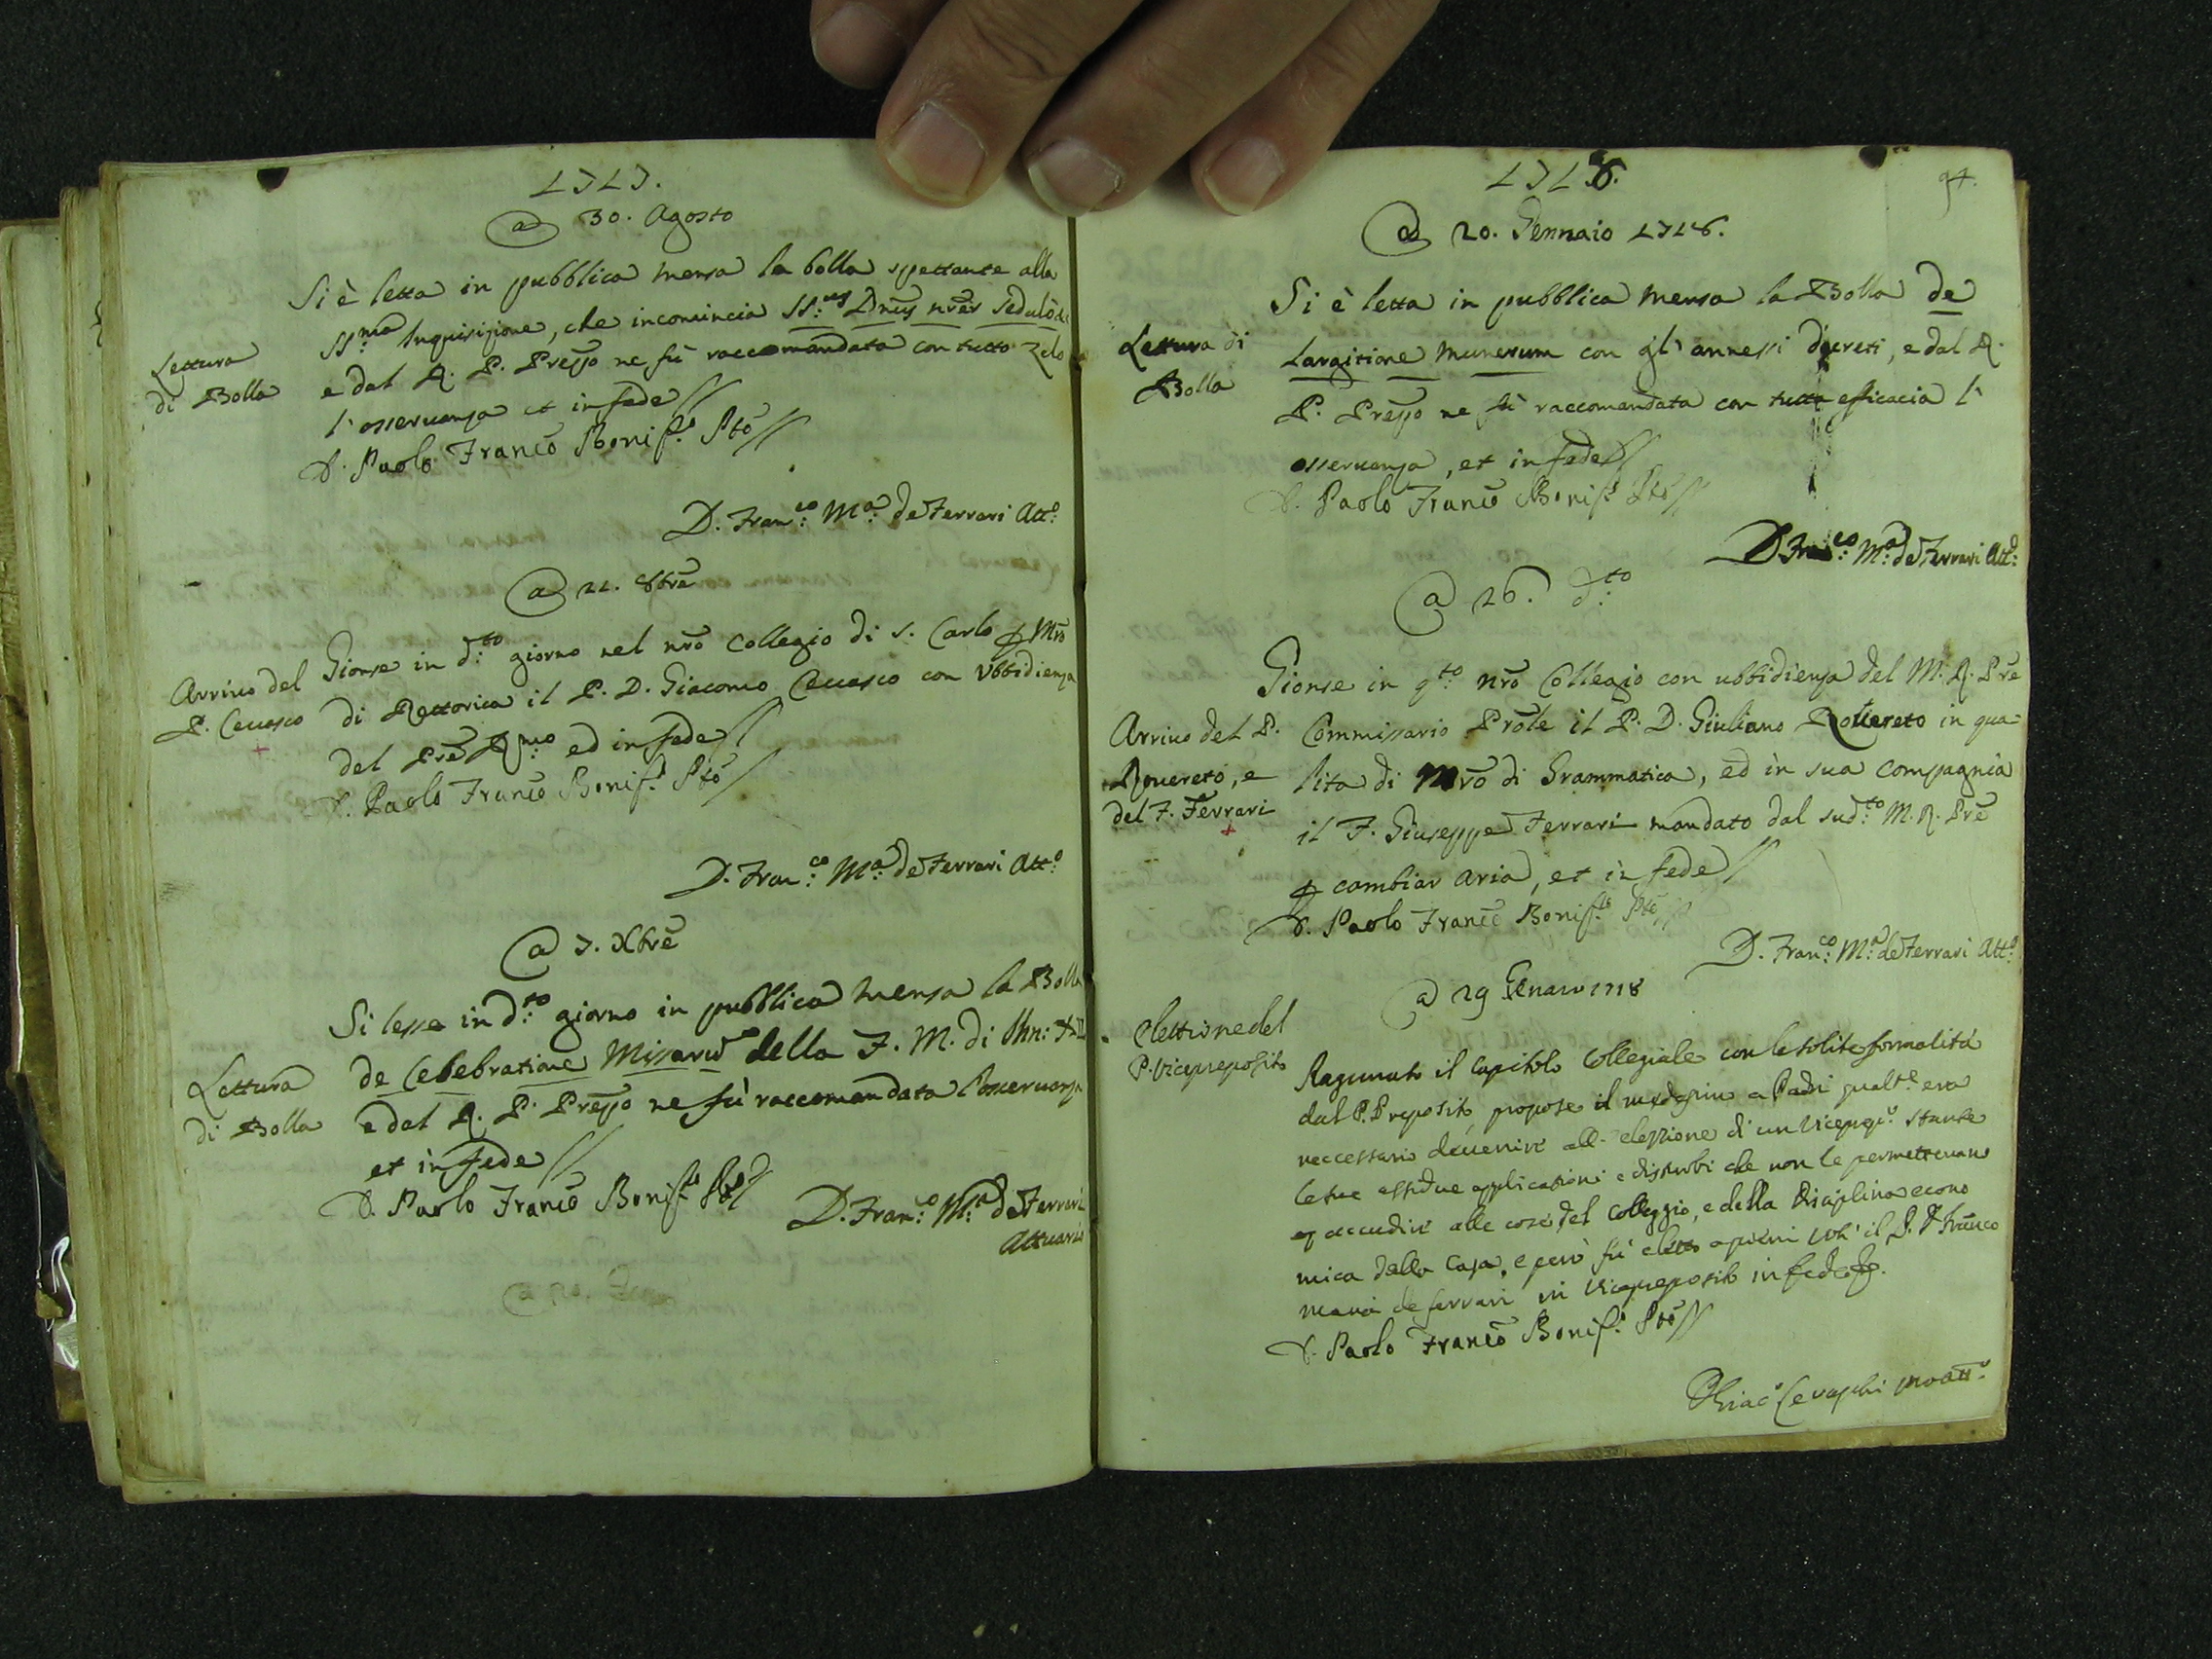 1717.
@ 30. Agosto
Lettura
di Bolla
Si è letta in pubblica mensa la bolla spettante alla
SS:ma Inquisizione, che incomincia SS:us Dnus nrēr sedulò
e dal R. P. Prepo ne fù raccomandata con tutto zelo
l'osseruanza et in fede //
D. Paolo Franco Bonif.o Ptō //
D. Fran:co M:a de Ferrari Att:o
@ 21. 8brē
Arriuo del
P. Ceuasco
+
Gionse in d:to giorno nel nrō Collegio di S. Carlo p Mrō
di Rettorica il P. D. Giacomo Ceuasco con Vbbidienza
del Prē Rmo ed in fede //
D. Paolo Franco Bonif.o Ptō /
D. Fran:co M:a de Ferrari Att:o
@ 7. Xbrē
Lettura
di Bolla
Si lesse in d:to giorno in pubblica mensa la Bolla
de Celebratione Missarū della F. M. di Inn: XII
e dal R. P. Prepo ne fù raccomandata l'osseruanza
et in fede //
D. Paolo Franco Bonif.to Ptō //
D. Fran:co M:a de Ferrari
Attuario
@ 20.
1718.
94.
@ 20. Gennaio 1718.
Lettura di
Bolla
Si è letta in pubblica mensa la Bolla de
Largitione munerum con gl'annessi decreti, e dal R.
P. Prepo ne fù raccomandata con tutta efficacia l'
osseruanza, et in fede //
D. Paolo Franco Bonif.o Ptō //
D. Fran:co M:a de Ferrari Att:o
@ 26. d:to
Arriuo del P.
Rouereto, e
del F. Ferrari
+
Gionse in q:to nrō Collegio con ubbidienza del M. R. Prē
Commissario Prōle il P. D. Giuliano Rouereto in qua
lita di Mrō di Grammatica, ed in sua compagnia
il F. Giuseppe Ferrari mandato dal sud:to M. R. Prē
p cambiar aria, et in fede //
D. Paolo Franco Bonif.to Ptō //
D. Fran:co M:a de Ferrari Att:o
@ 29 Genaro 1718
Elettione del
P. Vicepreposito
Ragunato il Capitolo Collegiale con le solite formalità
dal P. Preposito, propose il medesimo a Padri qualt.e era
neccessario deuenire all'elezzione di un Vicepp.o stante
le sue assidue applicazioni e disturbi che non le permetteuano
accudire alle cose del Colleggio, e della Disciplina econo
mica della Casa, e però fù eletto a pieni voti il P. D. Franco
Maria de ferrari in Vicepreposito in fede
D. Paolo Franco Bonif.o Ptō //
Ceuaschi proatt.o